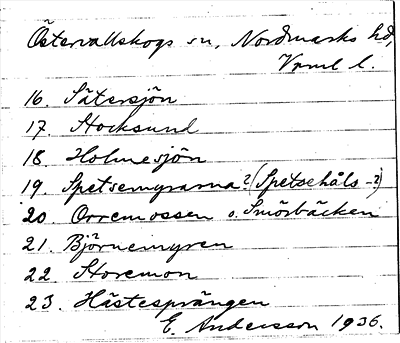 Östervallskogs sn, Nordmarks hd,
Vrml l.
16. Sätersjön
17. Stocksund
18. Holmesjön
19. Spetsemyrarna? (Spetsehåls-?)
20. Orremossen o. Smörbäcken
21. Björnemyren
22. Storemon
23. Hästesprängen
E. Andersson 1936.